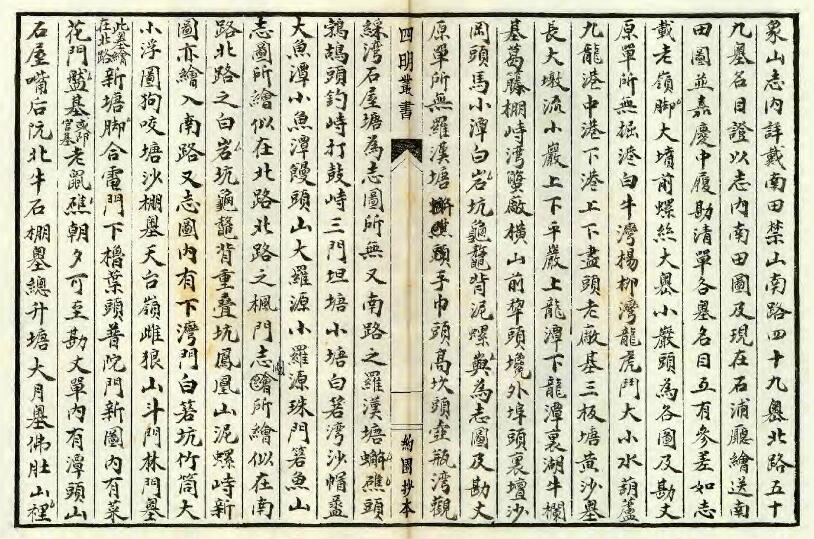 象山志內詳載南田禁山南路四十九嶴北路五十
九嶴名目證以志內南田圖及現在石浦廳繪送南
田圖並嘉慶中履勘清單各嶴名目互有參差如志
載老嶺脚大墳前螺絲大嶴小巖頭為各圖及勘丈
原單所無掘港白牛灣楊柳灣龍虎門大小水葫蘆
九龍港中港下港上下盡頭老廠基三板塘黃沙嶴
長大墩流小巖上下平巖上龍潭下龍潭裏湖牛欄
基葛籐棚峙灣蠶廠橫山前犂頭塆外埠頭裏壇沙
岡頭馬小潭白岩坑龜鼇背泥螺嶼為志圖及勘丈
原單所無羅漢塘蠏𧒽頭手巾頭高坎頭壺瓶灣觀
四明叢書
約園抄本
綵灣石屋塘為志圖所無又南路之羅漢塘蠏礁頭
鵓鴣頭釣峙打鼓峙三門坦塘小塘白箬灣沙帽盔
大魚潭小魚潭饅頭山大羅源小羅源珠門箬魚山
志圖所繪似在北路北路之楓門志圖所繪似在南
路北路之白岩坑龜鼇背重叠坑鳳凰山泥螺峙新
圖亦繪入南路又志圖內有下灣門白箬坑竹筒大
小浮圖狗咬塘沙棚嶴天台嶺雌狼山斗門林門嶴
此嶴繪在北路新塘脚合電門下櫓葉頭普陀門新圖內有菜
花門藍基或即官基老鼠礁朝夕可至勘丈單內有潭頭山
石屋嘴后阮北牛石棚嶴總升塘大月嶴佛肚山裡